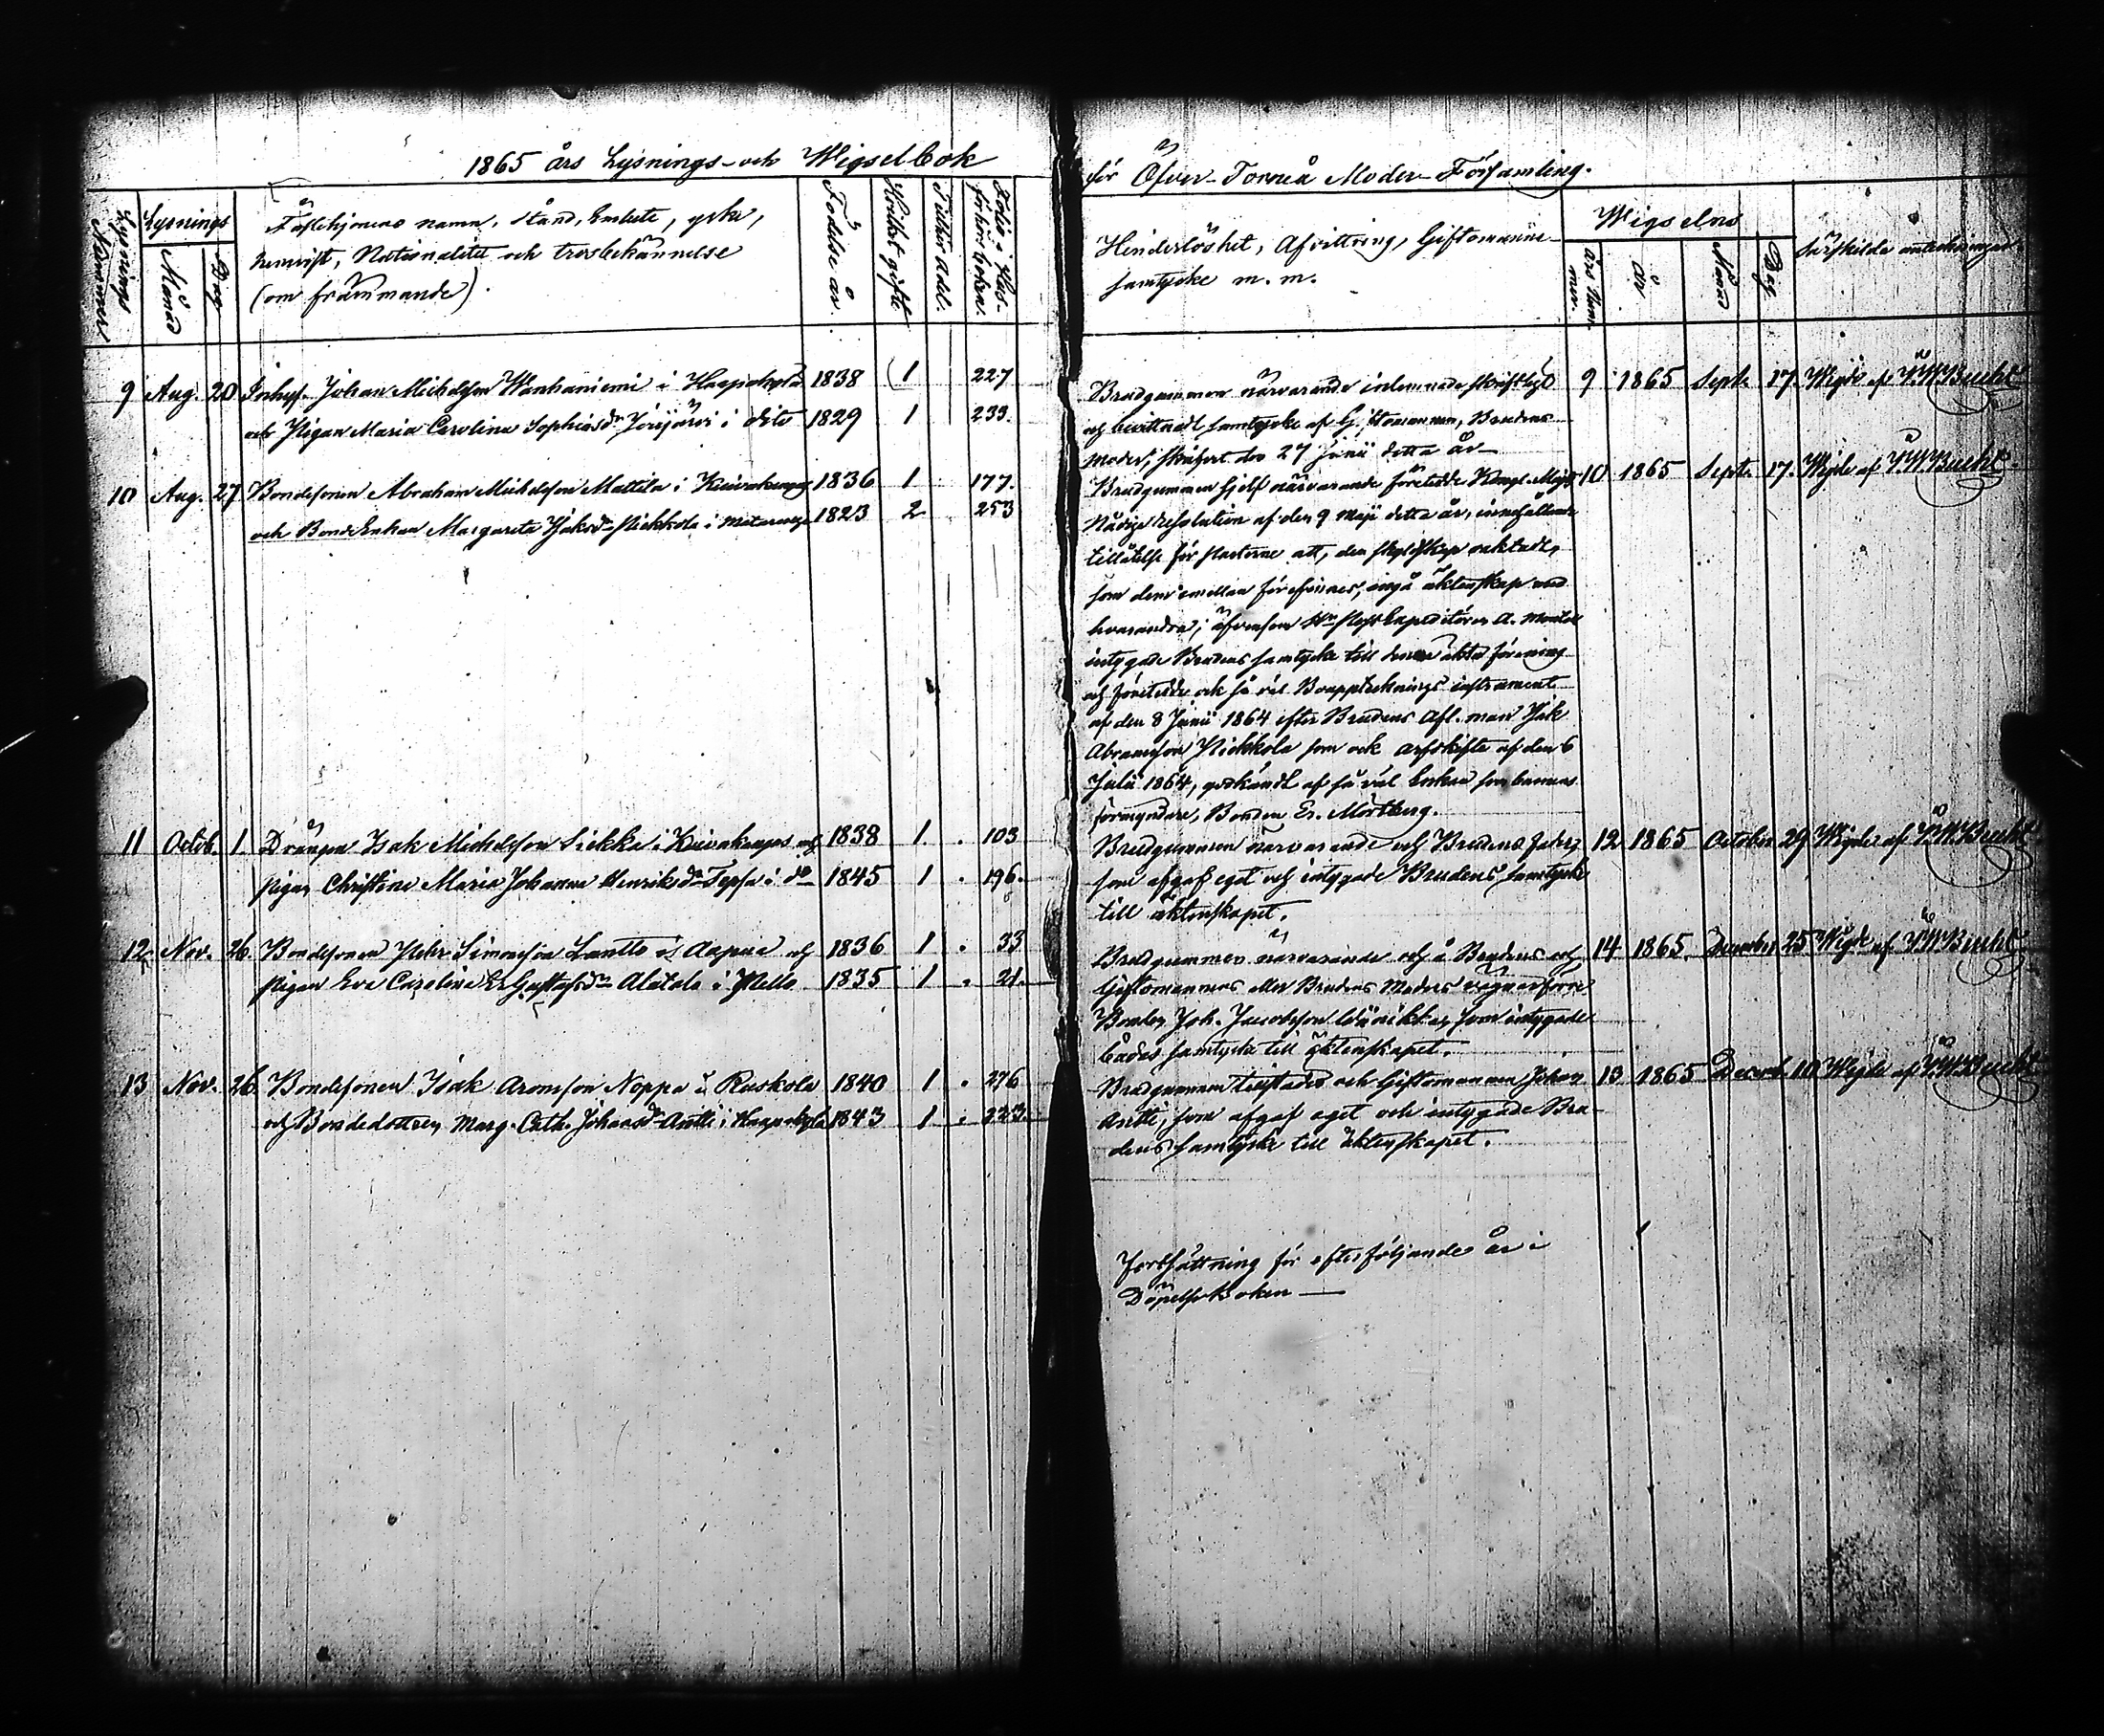 1865 års Lysnings- och Wigselbok
Lysnings Nummer
Lysnings
Månad
Dag
Fästehjonens namn, stånd, Embete, yrke,
hemvist, Nationalitet och trosbekännelse
(om främmande).
Födelse år.
Hvilket gifte
Folio i Hus-
förhörsboken.
9 Aug. 20 Inhys. Johan Michelsson Wanhaniemi i Haapakylä 1838 1 227
och Pigan Maria Carolina Sophiasdr i dito 1829 1 233.
10 Aug. 27 Bondesonen Abraham Michelsson Mattila i Kuivakangas 1836 1 177.
och BondeEnkan Margareta Isaksdr Niekkola i Matarengi 1823 2 253
11 Octob. 1. Drängen Isak Michelsson Siekka i Kuivakangas och 1838 1. 103
pigan Christina Maria Johanna Henriksdr i do 1845 1 196.
12 Nov. 26. Bondesonen Pehr Simonsson Lantto i Aapua och 1836 1 33
pigan Eva Carolina Gustafsdr Alatalo i Pello 1835 1 21.
13 Nov. 26. Bondesonen Isak Aronsson Noppa i Ruskola 1840 1 276
och Bondedottren Marg. Cath. Johansdr Antti i Haapakylä 1843 1 223.
för Öfver-Torneå Moder-Församling.
Hinderlöshet, Afvittring, Giftomanne-
samtycke m. m.
Wigselns
års Num-
mer.
År
Månad
Dag.
Särskilda anteckningar
Brudgummen närvarande inlemnade skriftligt 9 1865 Septr. 17. Wigde af Bucht
och bevittnadt samtycke af Giftomannen, Brudens
moder, den 27 Junii detta år
Brudgummen sjelf närvarande företedde Kongl. Majts 10 1865 Septr. 17. Wigde af Bucht.
Nådiga resolution af den 9 Maji detta år, innehållande
tillåtelse för parterne att, den skyldskap oaktadt,
som dem emellan förefinnes, ingå äktenskap med
hvarandra; äfvensom Hr A.
intygade Brudens samtycke till denna äkta förening
och företedde ock så väl Bouppteckningsinstrument
af den 8 Junii 1864 efter Brudens afl. man Isak
Abramsson Niekkola som ock arfskifte af den 6
Julii 1864, godkändt af så väl Enkan som barnens
förmyndare, Bonden Er. Mörtberg.
Brudgummen närvarande och Brudens fader, 12 1865 October 29 Wigde af Bucht
som afgaf eget och intygade Brudens samtycke
till äktenskapet.
Brudgummen närvarande och å Brudens och 14 1865. December 25 Wigde af Bucht
Giftomannens eller Brudens Moders vägnar
Bonden Joh. Jacobsson som intygade
bådas samtycke till äktenskapet.
Brudgummen tillstädes och Giftomannen Johan 13 1865 Decemb. 10 Wigde af Bucht
Antti, som afgaf eget och intygade Bru-
dens samtycke till äktenskapet.
Fortsättning för efterföljande år i
Döpelseboken —